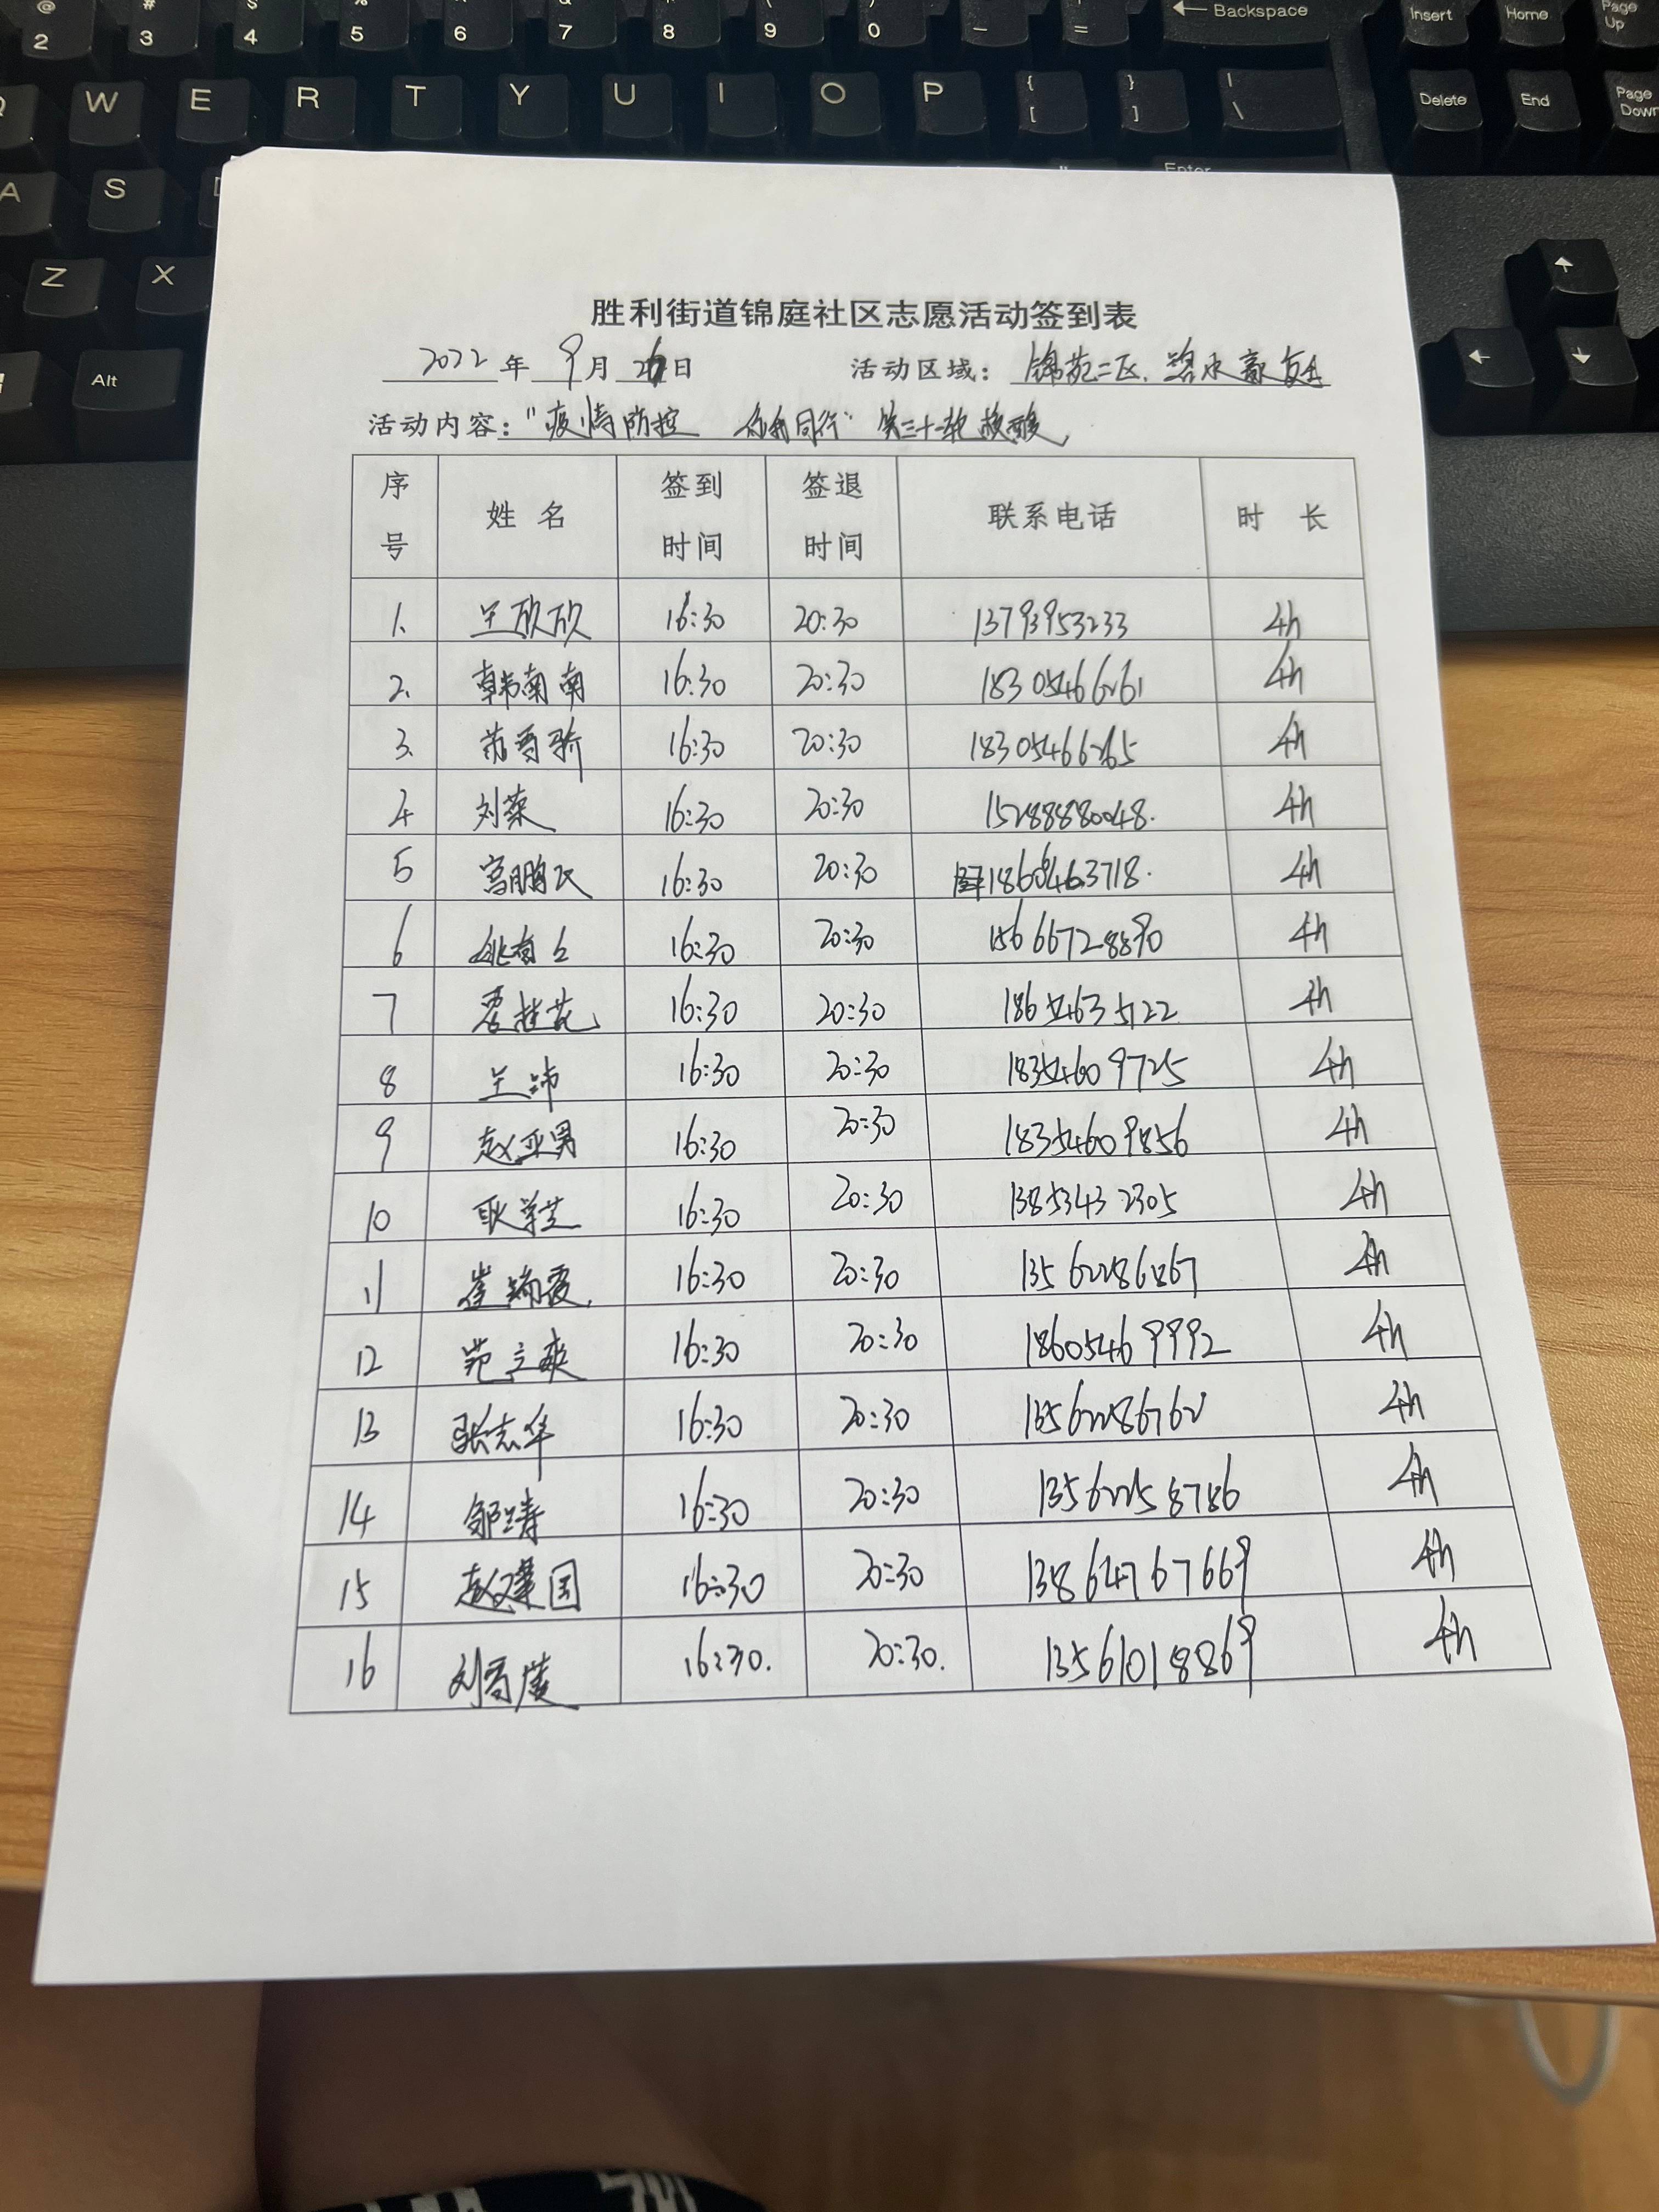 @ # $ % ^ & * ( ) _ + ← Backspace Insert Home Page Up
2 3 4 5 6 7 8 9 0 - =
W E R T Y U I O P { [ } ] | \ Delete End Page Down
A S Enter
Z X ↑
Alt ← ↓
胜利街道锦庭社区志愿活动签到表
2022年 9月 26日 活动区域：锦苑二区、
活动内容："疫情防控 你我同行" 第三十一轮核酸
序号 姓名 签到时间 签退时间 联系电话 时长
1. 王欣欣 16:30 20:30 13793953233 4h
2. 韩南南 16:30 20:30 18305466261 4h
3. 16:30 20:30 18305466265 4h
4 刘荣 16:30 20:30 15288880048. 4h
5 宫鹏飞 16:30 20:30 4h
6 16:30 20:30 15666728890 4h
7 16:30 20:30 18654635122 4h
8 王沛 16:30 20:30 18354609725 4h
9 赵亚男 16:30 20:30 18354609856 4h
10 耿学芝 16:30 20:30 13853432305 4h
11 崔瑞霞 16:30 20:30 13562286867 4h
12 范立爽 16:30 20:30 18605469992 4h
13 张志华 16:30 20:30 13562286762 4h
14 邹涛 16:30 20:30 13562258786 4h
15 赵建国 16:30 20:30 13864767669 4h
16 16:30. 20:30. 13561018869 4h